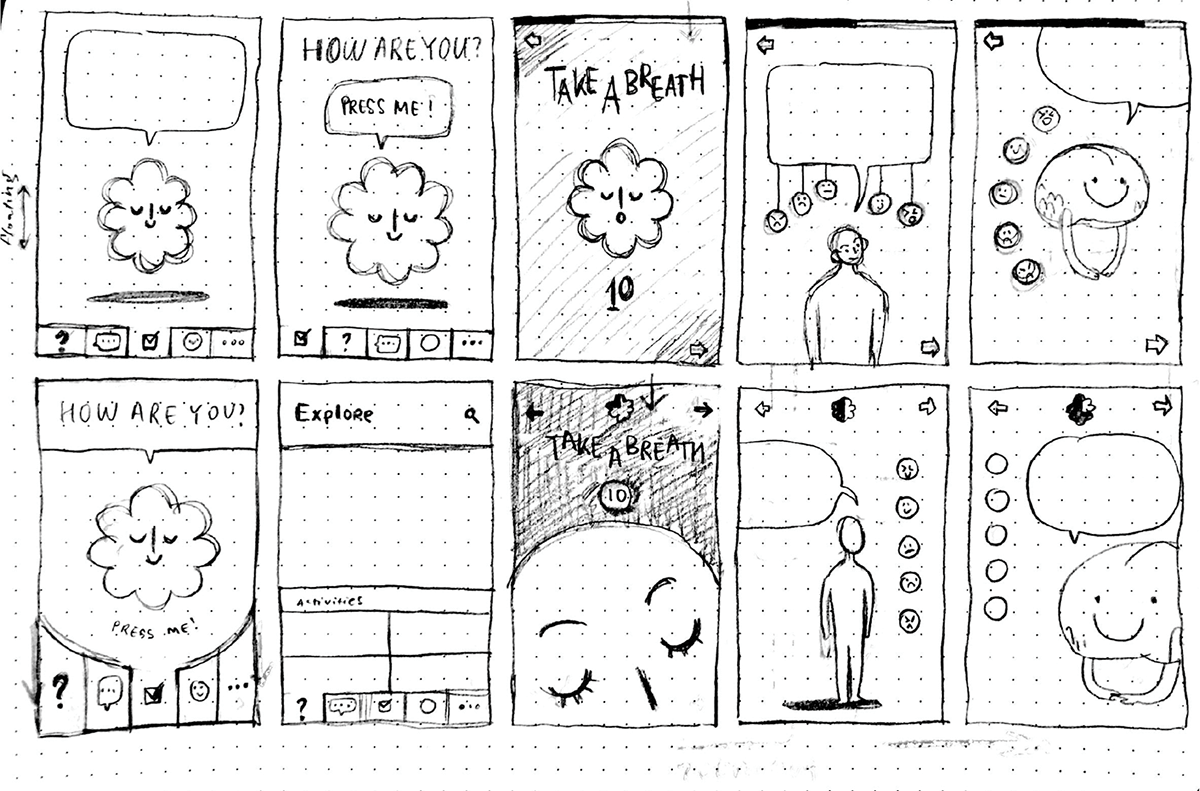 HOW ARE YOU?
PRESS ME!
TAKE A BREATH
10
Floating
?
?
HOW ARE YOU?
PRESS ME!
?
Explore
Activities
?
TAKE A BREATH
10